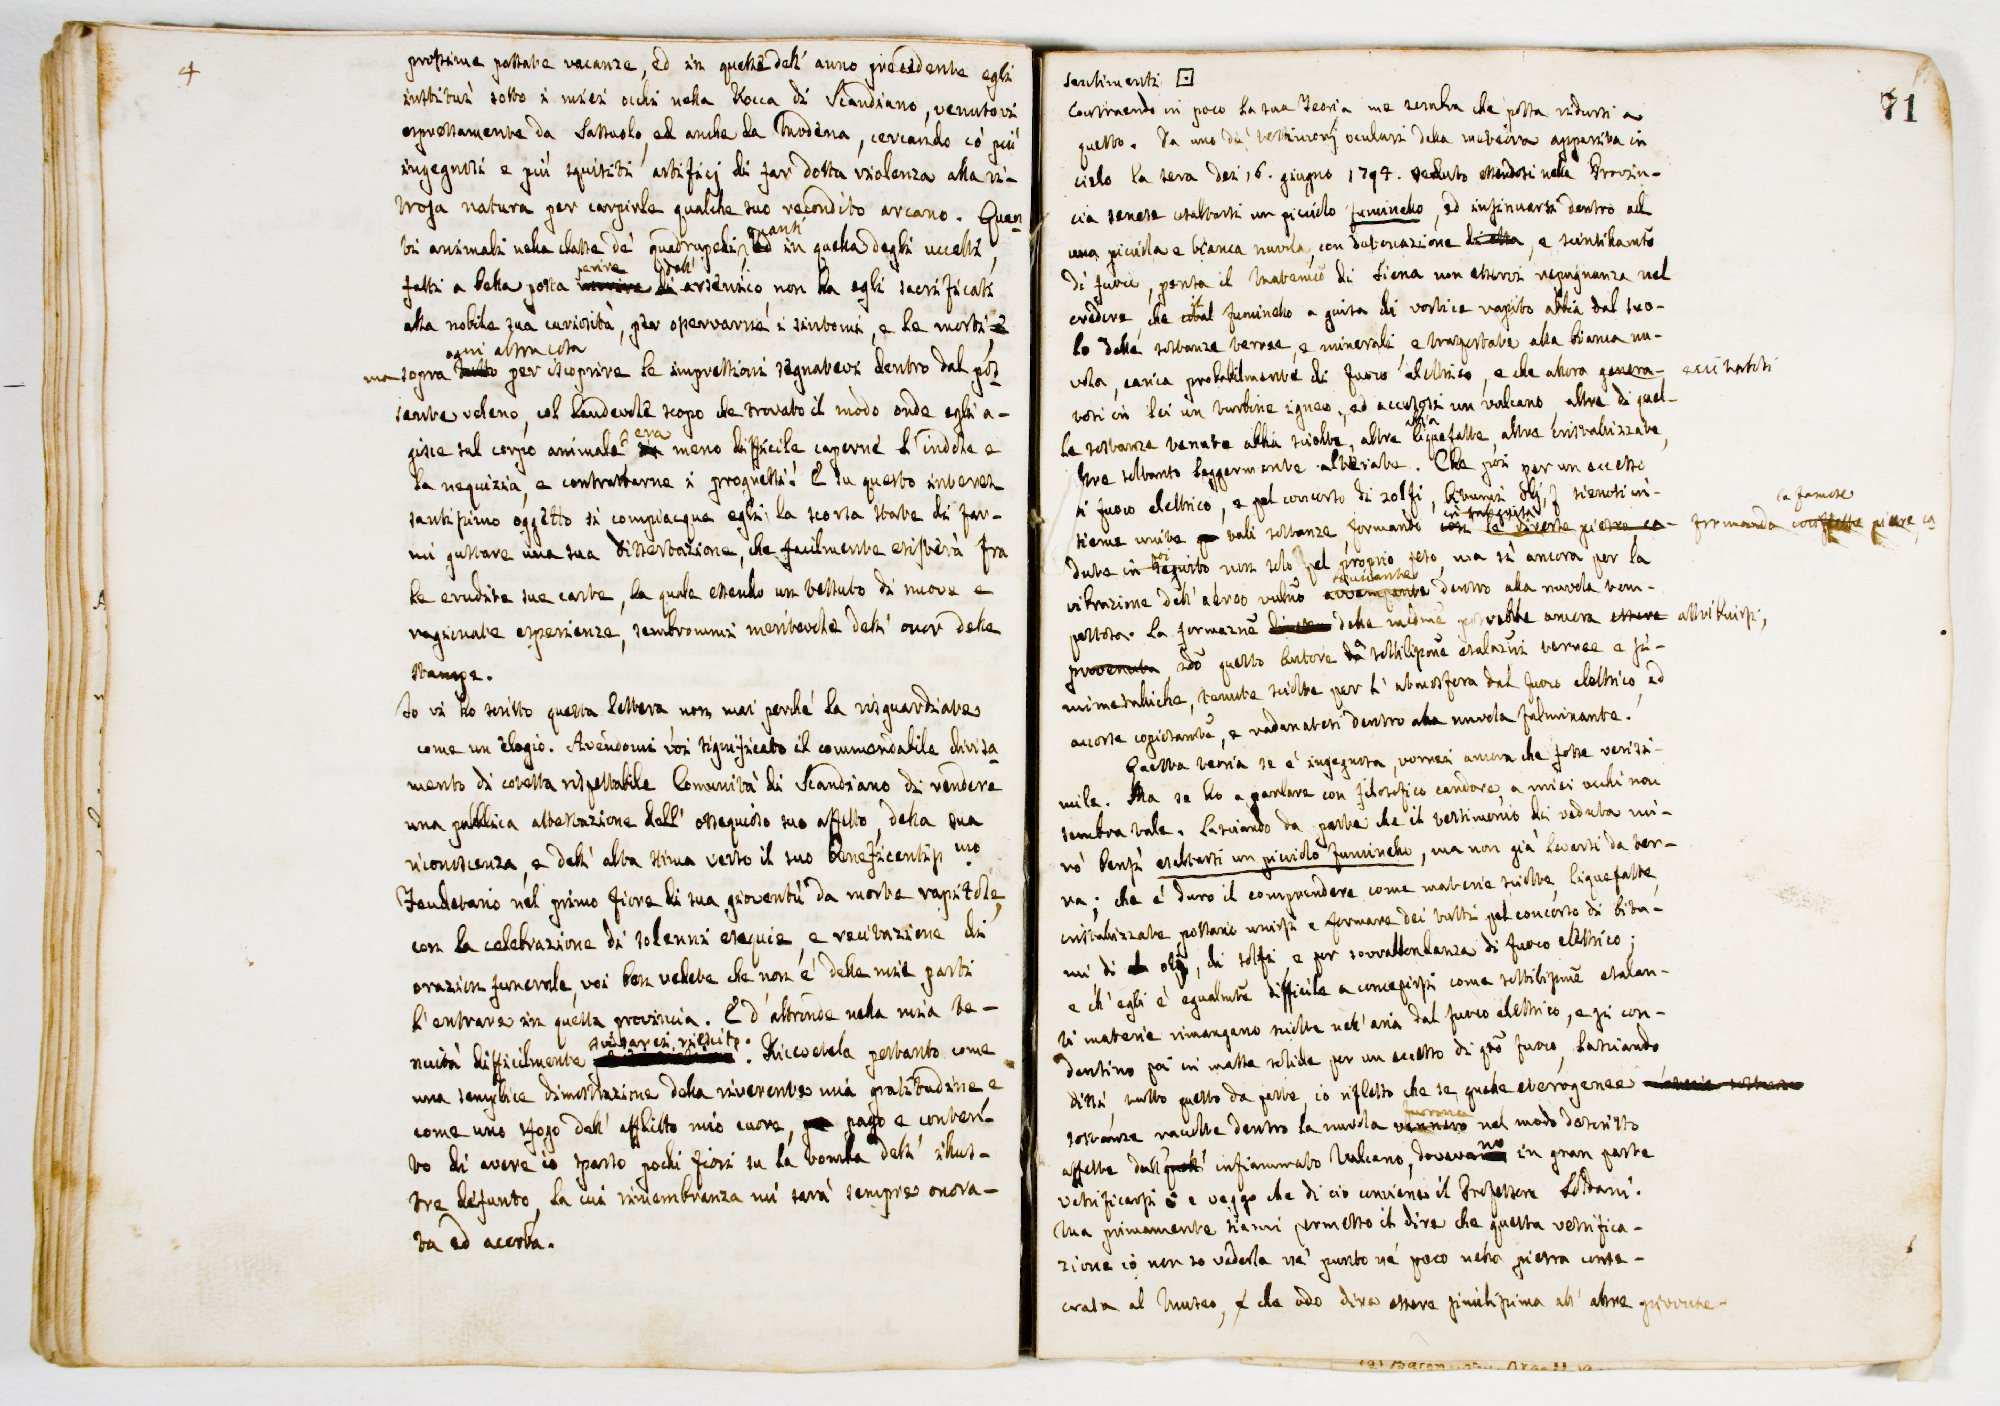 4
prossime passate vacanze, ed in quelle dell' anno precedente egli
instituì sotto i miei occhi nella Rocca di Scandiano, venutovi
espressamente da Sassuolo, ed anche da Modena, cercando co' più
ingegnosi e più squisiti artificj di far dotta violenza alla ri-
trosa natura per carpirle qualche suo recondito arcano. Quan
ti animali nella classe de' quadrupedi, quanti in quella degli uccelli,
fatti a bella posta perire dall' arsenico, non ha egli sacrificati
alla nobile sua curiosità, per osservarne i sintomi, e la morte, e
ma sopra ogni altra cosa per iscoprire le impressioni segnatevi dentro dal pos
sente veleno, col laudevole scopo che trovato il modo onde egli a-
gisce sul corpo animale era meno difficile saperne l' indole e
la nequizia, e contrastarne i progressi! E su questo interes
santissimo oggetto si compiacque egli la scorsa state di far-
mi gustare una sua dissertazione, che facilmente esisterà fra
le erudite sue carte, la quale essendo un tessuto di nuove e
ragionate esperienze, sembrommi meritevole dell' onor delle
stampe.
Io vi ho scritto questa lettera non mai perché la risguardiate
come un elogio. Avendomi voi significato il commendabile divisa
mento di cotesta rispettabile Comunità di Scandiano di rendere
una pubblica attestazione dell' ossequioso suo affetto, della sua
riconoscenza, e dell' alta stima verso il suo beneficentiss.mo
Feudetario nel primo fiore di sua gioventù da morte rapitole,
con la celebrazione di solenni esequie, e recitazione di
orazion funerale, voi ben vedete che non è delle mie parti
l' entrare in questa provincia. E d' altronde nella mia te-
nuità difficilmente sarei riescito. Riccetela pertanto come
una semplice dimostrazione della riverente mia gratitudine, e
come uno sfogo dell' afflitto mio cuore, pago e conten-
to di avere io sparso pochi fiori su la tomba dell' illus-
tre defunto, la cui rimembranza mi sarà sempre onora-
ta ed acerba.
71
sentimenti
Costrinendo in poco la sua Teoria me sembra che possa ridursi a
questo. Da uno de' testimonj oculari della meteora apparita in
cielo la sera dei 16. giugno 1794. veduto essendosi nella Provin-
cia senese esaltarsi un picciolo fumincello, ed insinuarsi dentro ad
una picciola e bianca nuvola, con detonazione di essa, e scintillamto
di fuoco, pensa il Matematico di Siena non esservi repugnanza nel
credere, che il fumincello a guisa di vortice rapito abbia dal suo-
lo delle sostanze terree, e minerali e trasportate alla bianca nu-
vola, carica probabilmente di fuoco elettrico, e che allora genera- eccitatosi
tosi in lei un turbine igneo, ed accesosi un vulcano, altre di quel-
le sostanze tenute abbia sciolte, altre abbia liquefatte, altre cristallizzate,
altre soltanto leggermente alterate. Che poi per un eccesso
di fuoco elettrico, e pel concorso di zolfi, bitumi, olj, sienosi in-
sieme unite tali sostanze formando le diverse pietre ca- formando la famose pietre ca
dute in seguito non solo pel proprio peso, ma sì ancora per la
vibrazione dell' aereo vulno dentro alla nuvola tem-
pestosa. La formazne delle medme potrebbe ancora essere attribuirsi,
provenuta sdo questo Autore da sottilissime esalazni terree e fu-
mimetalliche, tenute sciolte per l' atmosfera dal fuoco elettrico, ed
accorse copiosamte, e radunatesi dentro alla nuvola fulminante.
Questa teoria se è ingegnosa, vorrei ancora che fosse verisi-
mile. Ma se ho a parlare con filosofico candore, a miei occhi non
sembra tale. Lasciando da parte che il testimonio di veduta mi-
rò bensì esaltarsi un picciolo fumincello, ma non già levarsi da ter-
ra; che è duro il comprendere come materie sciolte, liquefatte,
cristallizzate possano unirsi e formare dei tutti pel concorso di bitu-
mi di olj, di zolfi e per sovrabbondanza di fuoco elettrico;
e ch' egli è egualmte difficile a concepirsi come sottilissime esalan-
ti materie rimangano sciolte nell' aria dal fuoco elettrico, e si con-
densino poi in masse solide per un eccesso di qto fuoco, lasciando
dissi, tutto questo da parte, io rifletto che se quelle eterogenee
sostanze raccolte dentro la nuvola furono nel modo descritto
affette dall' infiammato Vulcano, dovevano in gran parte
vetrificarsi e veggo che di ciò conviene il Professore Soldani.
Ma primamente siami permesso il dire che questa vetrifica-
zione io non so vederla né punto né poco nella pietra conse-
crata al Museo, e che odo dire essere similissima all' altre piovute-